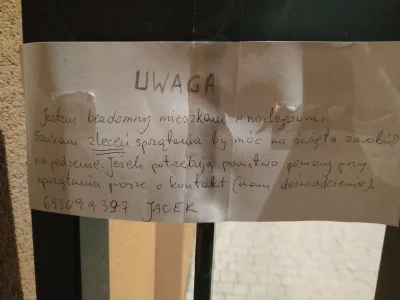 UWAGA
Jestem bezdomny mieszkam w noclegowni
Szukam zleceń sprzątania by móc na święta zarobić
na jedzenie. Jeżeli potrzebują państwo pomocy przy
sprzątaniu proszę o kontakt (mam doświadczenie).
693099397 JACEK